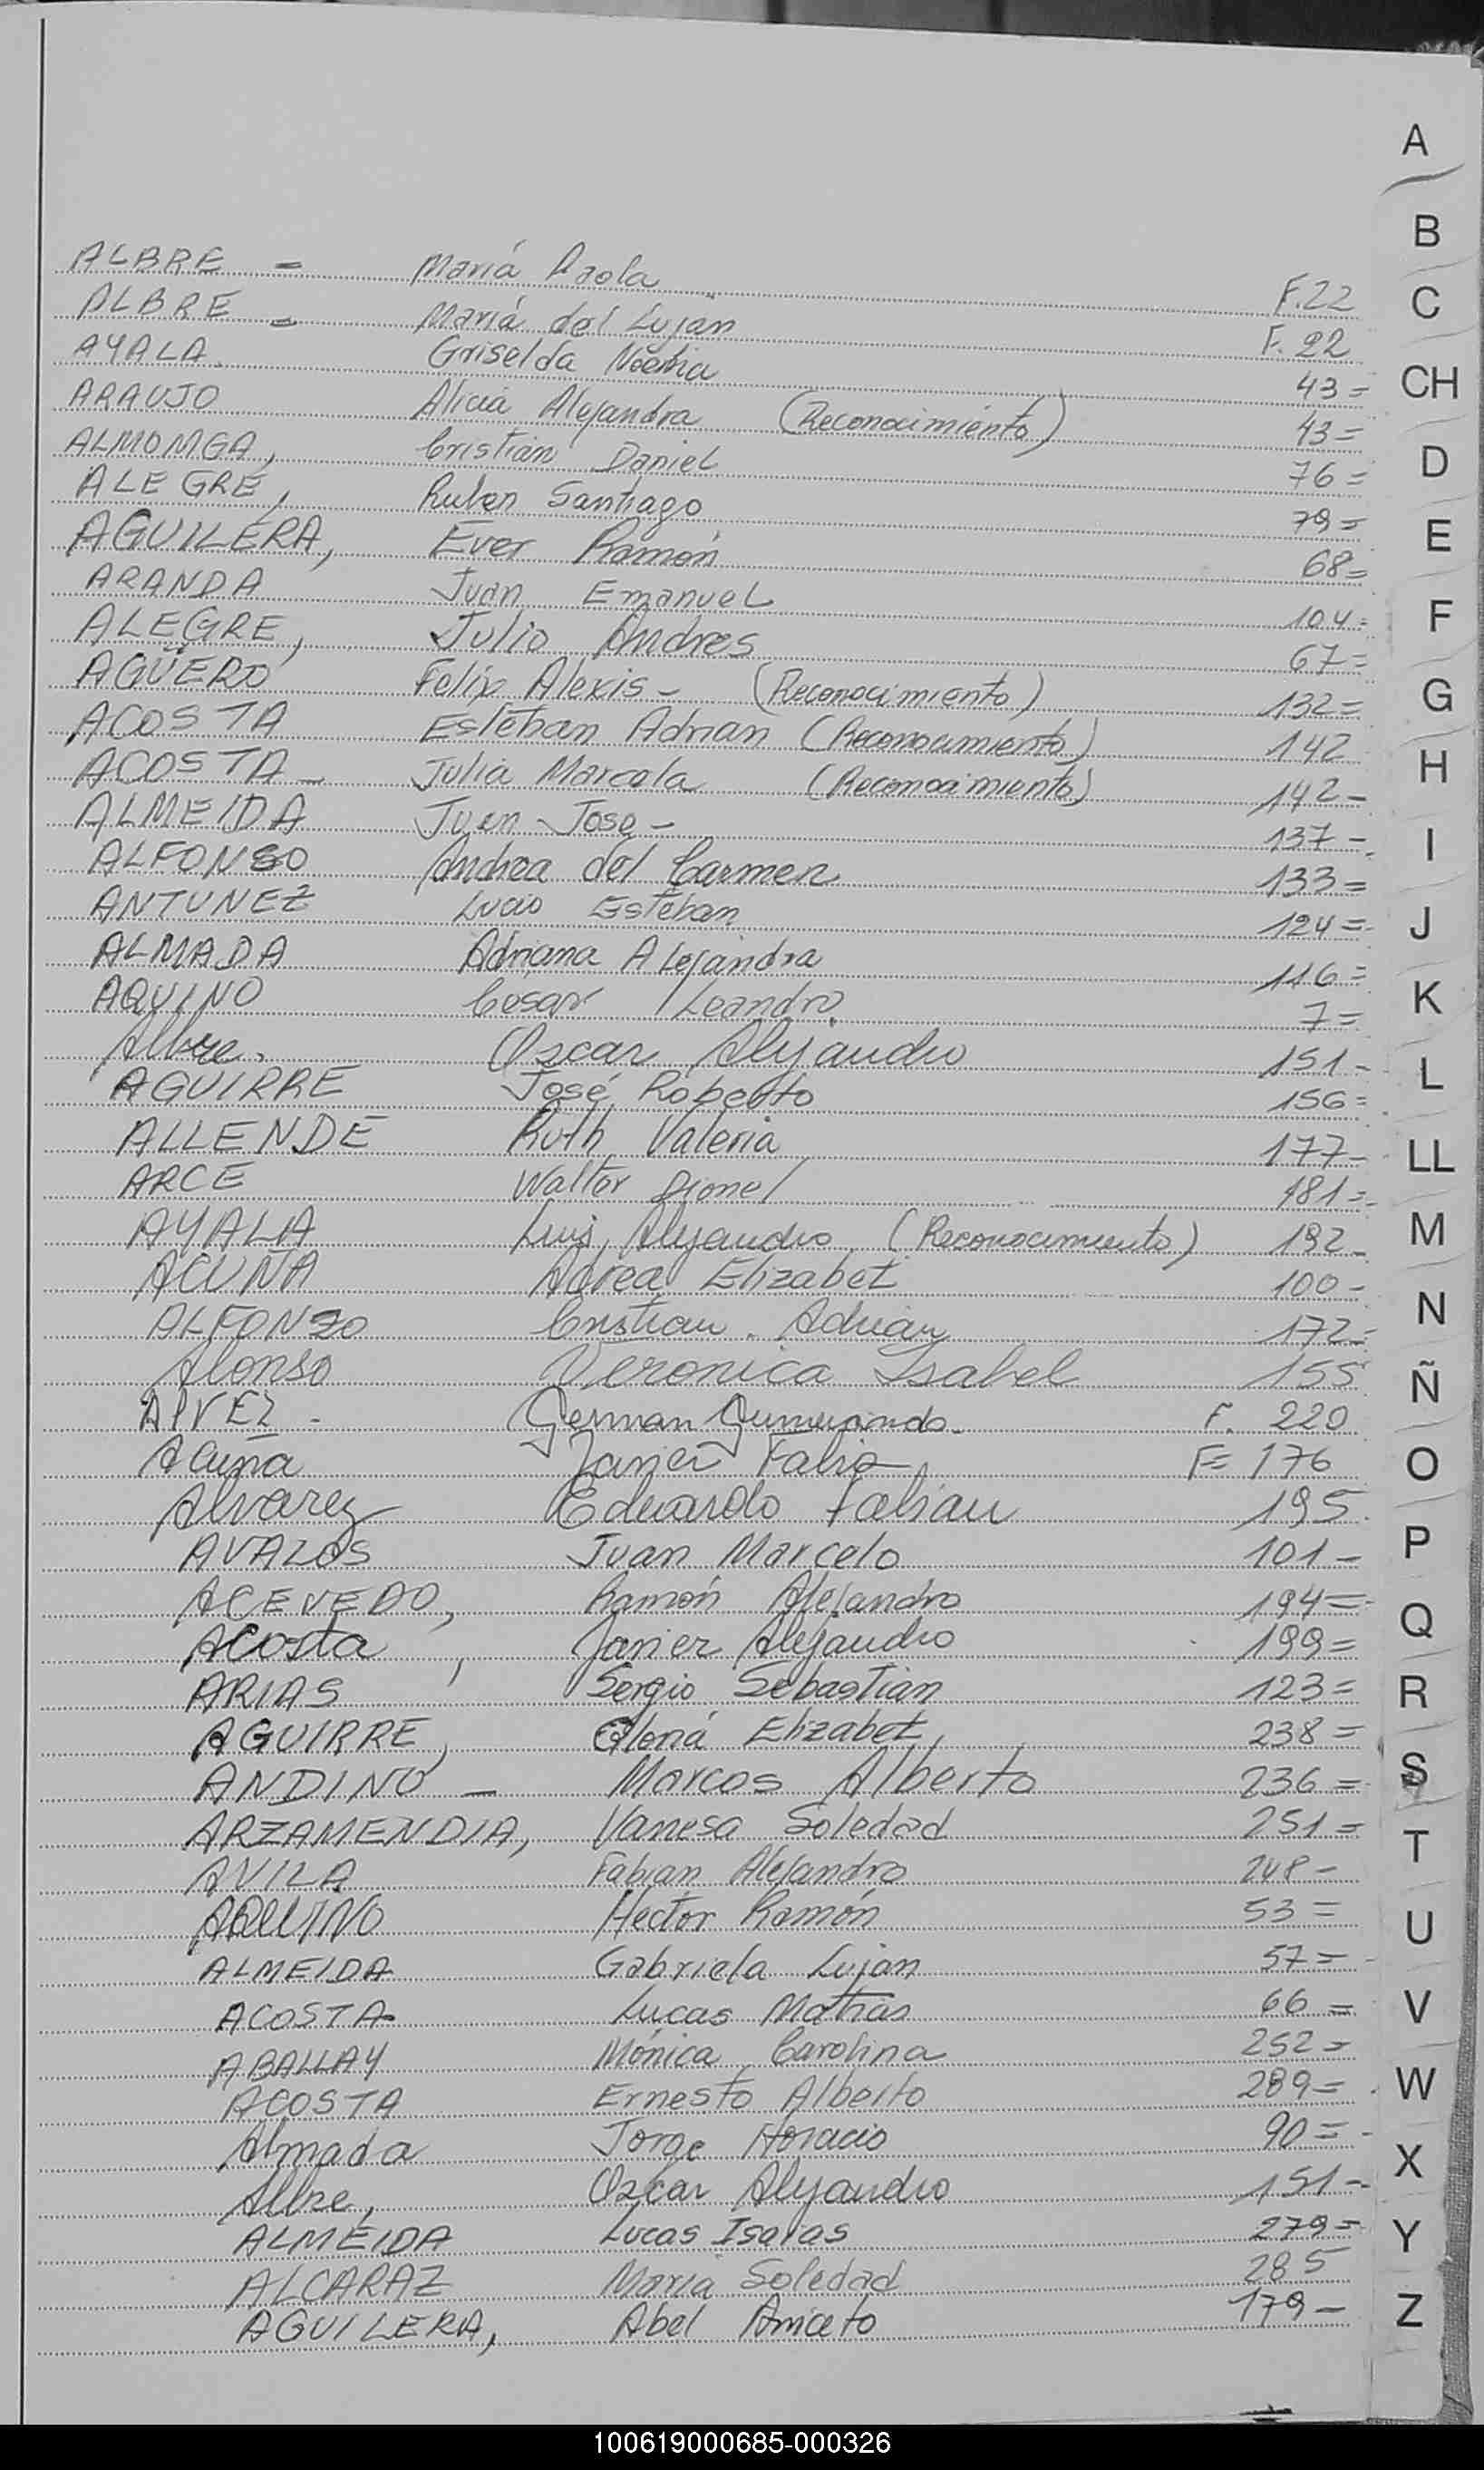 A
B
C
CH
D
E
F
G
H
I
J
K
L
LL
M
N
Ñ
O
P
Q
R
S
T
U
V
W
X
Y
Z
ALBRE - María Paola F.22
ALBRE - María del Luján F.22
AYALA. Griselda Noemia 43=
ARAUJO Alicia Alejandra (Reconocimiento) 43=
ALMONGA, Cristian Daniel 76=
ALEGRE, Ruben Santiago 79=
AGUILERA, Ever Ramón 68=
ARANDA Juan Emanuel 104=
ALEGRE, Julio Andres 67=
AGÜERO Felix Alexis - (Reconocimiento) 132=
ACOSTA Esteban Adrian (Reconocimiento) 142
ACOSTA - Julia Marcela (Reconocimiento) 142-
ALMEIDA Juan José - 137-
ALFONSO Andrea del Carmen 133=
ANTUNEZ Lucio Esteban 124=
ALMADA Adriana Alejandra 116=
AQUINO César Leandro. 7=
Albre. Oscar Alejandro 151-
AGUIRRE José Roberto 156=
ALLENDE Ruth Valeria 177-
ARCE Walter Lionel 181=
AYALA Luis Alejandro (Reconocimiento) 192-
ACUÑA Adrea Elizabet 100-
ALFONZO Cristian. Adrian 172=
Alonso Veronica Isabel 155
German F. 220
Acuña Javier Fabio F= 176
Alvarez Eduardo Fabian 195
AVALOS Juan Marcelo 101-
ACEVEDO, Ramón Alejandro 194=
Acosta, Javier Alejandro 199=
ARIAS Sergio Sebastian 123=
AGUIRRE, Gloria Elizabet, 238=
ANDINO - Marcos Alberto 236=
ARZAMENDIA, Vanesa Soledad 251=
AVILA Fabian Alejandro 248-
AQUINO Hector Ramón 53=
ALMEIDA Gabriela Luján 57=
ACOSTA Lucas Matias 66=
ABALLAY Mónica Carolina 252=
ACOSTA Ernesto Alberto 289=
Almada Jorge Horacio 90=
Albre, Oscar Alejandro 151-
ALMEIDA Lucas Isaias 279=
ALCARAZ Maria Soledad 285
AGUILERA, Abel Aniceto 179-
100619000685-000326